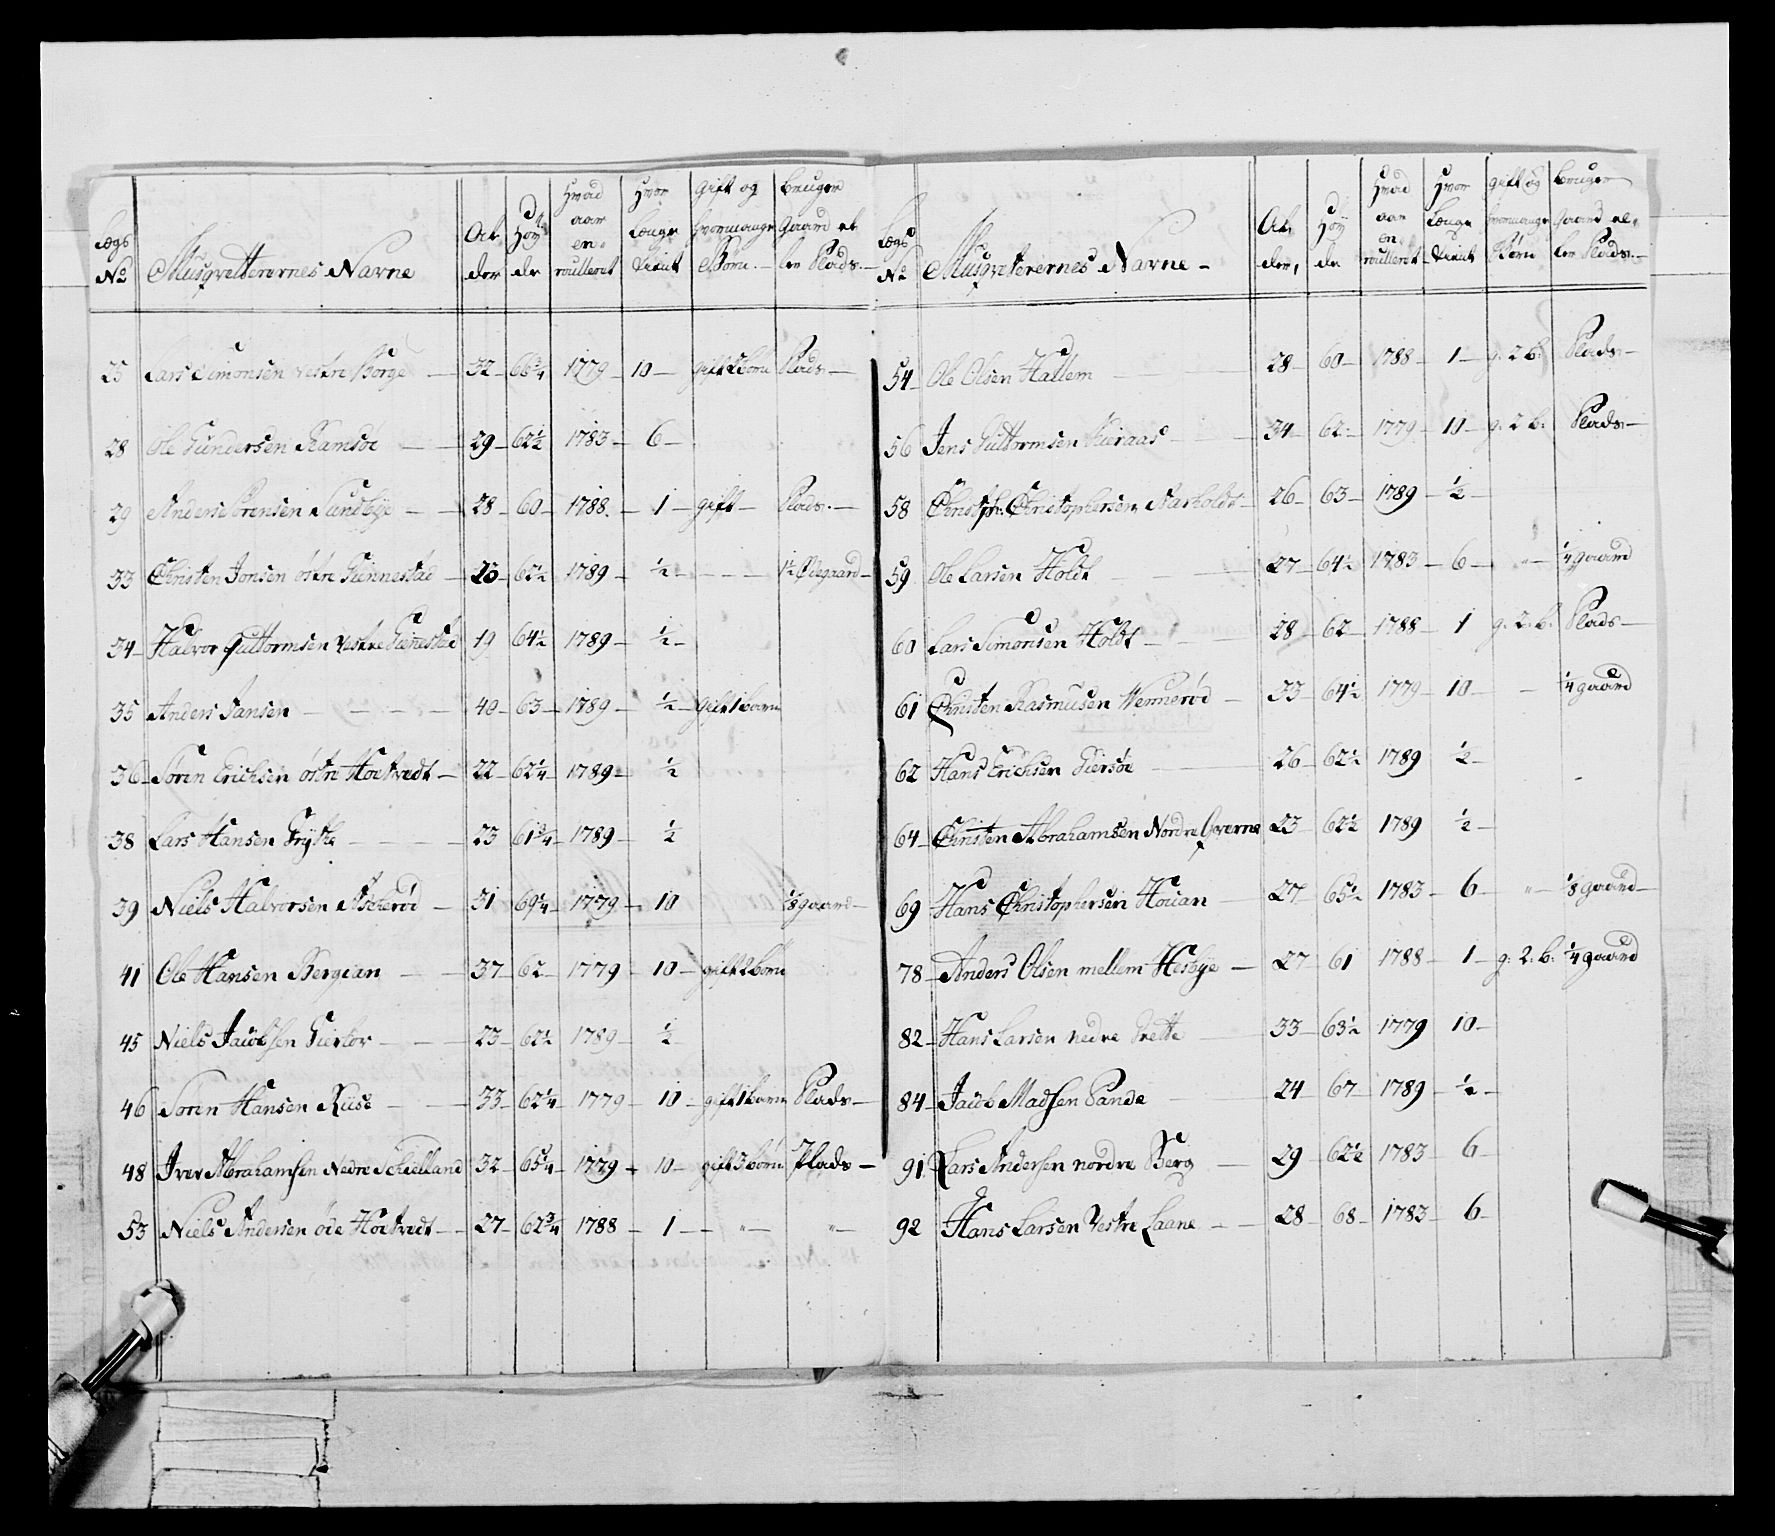 Lægs No | Musqvetterernes Navne | Al der | Høy de | Hvad aar en roulleret | Hvor Længe tient | Gift og hvormange Børn. | bruger Gaard el ler Plads.
25 Lars Simonsen vestre Borge 32 66 3/4 1779 10 gift 2 børn Plads
28 Ole Gundersen Ramsøe 29 62 1/2 1783 6
29 Anders Sørensen Sandbye 28 60 1788 1 gift Plads
33 Christen Jonsen østre Gennestad 23 62 1/2 1789 1/2 1/2 Ødegaard
34 Halvor Guttormsen vestre Gennestad 19 64 1/2 1789 1/2
35 Anders Jansen 40 63 1789 1/2 Gift 1 barn
36 Søren Erichsen østre Hoetvedt 22 62 1/4 1789 1/2
38 Lars Hansen 23 61 3/4 1789 1/2
39 Niels Halvorsen Askerød 31 69 1/4 1779 10 1/8 gaard
41 Ole Hansen Bergean 37 62 1779 10 gift 2 børn
45 Niels Jacobsen 23 62 1/2 1789 1/2
46 Søren Hansen Riise 33 62 1/4 1779 10 gift 1 barn Plads
48 Iver Abrahamsen Nedre Schielland 32 65 1/4 1779 10 gift 3 børn Plads
53 Niels Andersen øde Hoetvedt 27 62 3/4 1788 1 " "
Lægs No | Musqveterernes Navne | Al, der, | Høy de | Hvad aar en roulleret | Hvor Længe tient | gift og hvormange Børn | bruger Gaard el ler Plads.
54 Ole Olsen Hallem 28 60 1788 1 g. 2 b. Plads
56 Jens Guttormsen 34 62 1779 10 g. 2 b. Plads
58 Christph. Christophersen Aasholdt 26 63 1789 1/2
59 Ole Larsen Holdt 27 64 1/2 1783 6 " 1/4 gaard
60 Lars Simonsen Holdt 28 62 1788 1 g. 2. b. Plads
61 Christen Rasmusen Wennerød 33 64 1/2 1779 10 1/4 gaard
62 Hans Erichsen Giersøe 26 62 1/2 1789 1/2
64 Christen Abrahamsen Nordre Qverne 23 62 1/2 1789 1/2
69 Hans Christophersen Houan 27 65 1/2 1783 6 " 1/8 gaard
78 Anders Olsen mellem Hesbye 27 61 1788 1 g. 2. b. 1/4 gaard
82 Hans Larsen nedre 33 63 1/2 1779 10
84 Jacob Madsen Sande 24 67 1789 1/2
91 Lars Andersen nordre Berg 29 62 1/2 1783 6
92 Hans Larsen Vestre Laane 28 68 1783 6